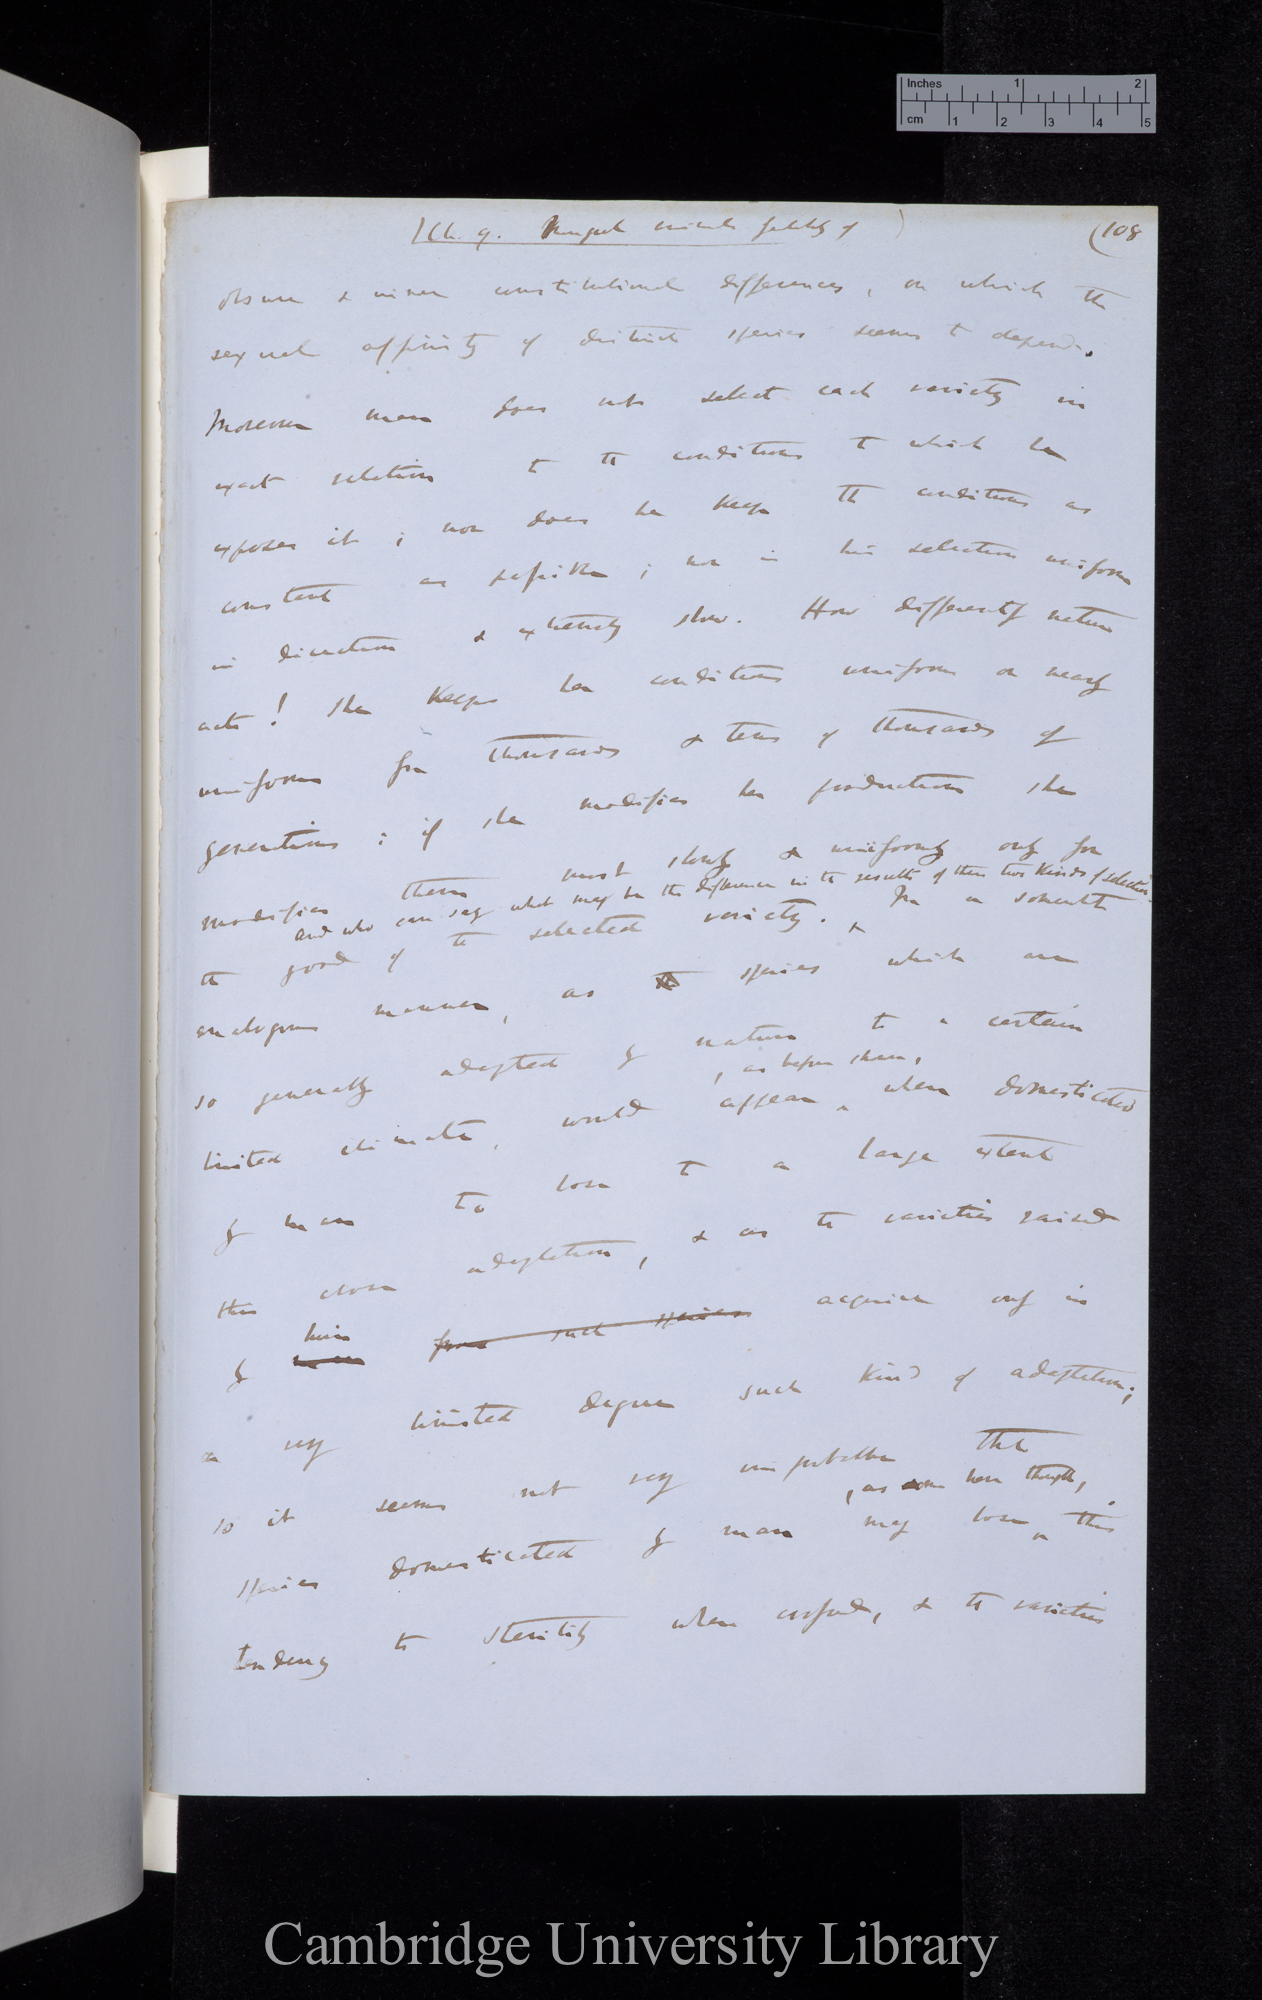 Inches 1 2
cm 1 2 3 4 5
(Ch. 9. Mongrels fertility of) (108
obscure & minor constitutional differences, on which the
sexual affinity of distinct species seems to depend.
Moreover man does not select each variety in
exact relation to the conditions to which he
exposes it; nor does he keep the conditions as
constant as possible; nor is his selection uniform
in direction & extremely slow. How differently nature
acts! She keeps her conditions uniform or nearly
uniform for thousands & tens of thousands of
generations: if she modifies her productions she
modifies them most slowly & uniformly only for
and who can say what may be the difference in the results of these two kinds of selection.
the good of the selected variety. ^ In a somewhat
analogous manner, as the species which are
so generally adapted by nature to a certain
, as before shown,
limited climate, would appear ^ when domesticated
by man to lose to a large extent
this close adaptation, & as the varieties raised
him
by man from such species acquire only in
a very limited degree such kind of adaptation;
so it seems not very improbable that
, as some have thought,
species domesticated by man may lose ^ this
tendency to sterility when crossed, & the varieties
Cambridge University Library